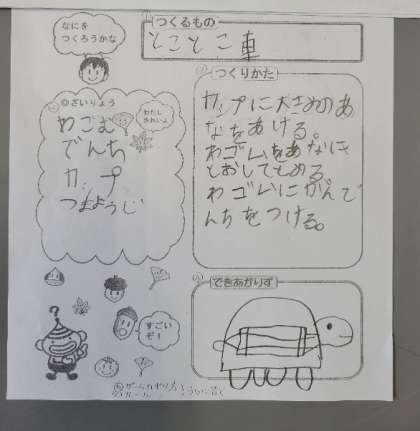 なにを
つくろうかな
つくるもの
とことこ車
◎ざいりょう
わたし
きれいよ
わごむ
でんち
カップ
つまようじ
つくりかた
カップに大きめのあ
なをあける。
わゴムをあなに
とおしてとめる。
わゴムにかんで
んちをつける。
できあがりず
すごい
ぞ!
?